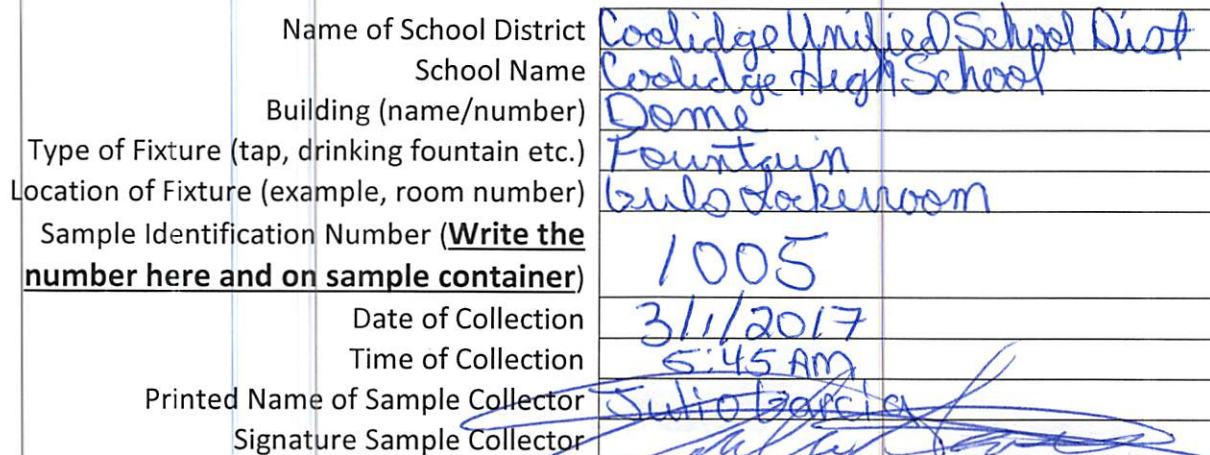 Name of School District Coolidge Unified School Dist
School Name Coolidge High School
Building (name/number) Dome
Type of Fixture (tap, drinking fountain etc.) Fountain
Location of Fixture (example, room number) Girls Lockerroom
Sample Identification Number (Write the
number here and on sample container) 1005
Date of Collection 3/1/2017
Time of Collection 5:45 AM
Printed Name of Sample Collector Julio Garcia
Signature Sample Collector